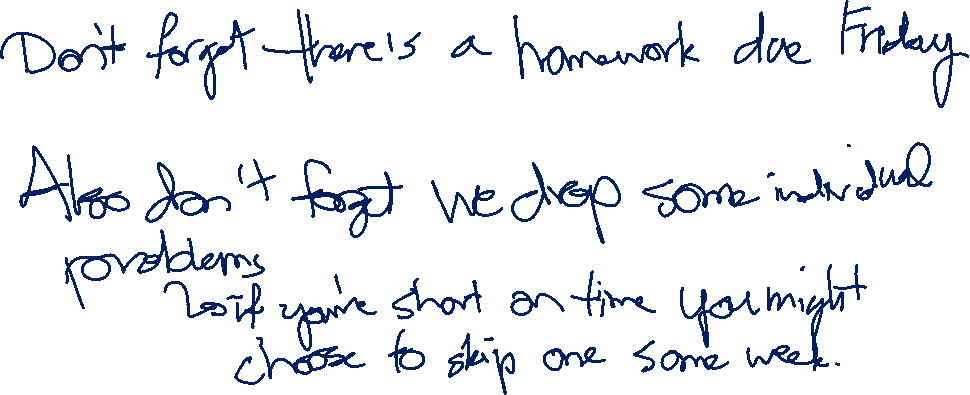 Don't forget there's a homework due Friday
Also don't forget we drop some individual
problems
so if you're short on time you might
choose to skip one some week.